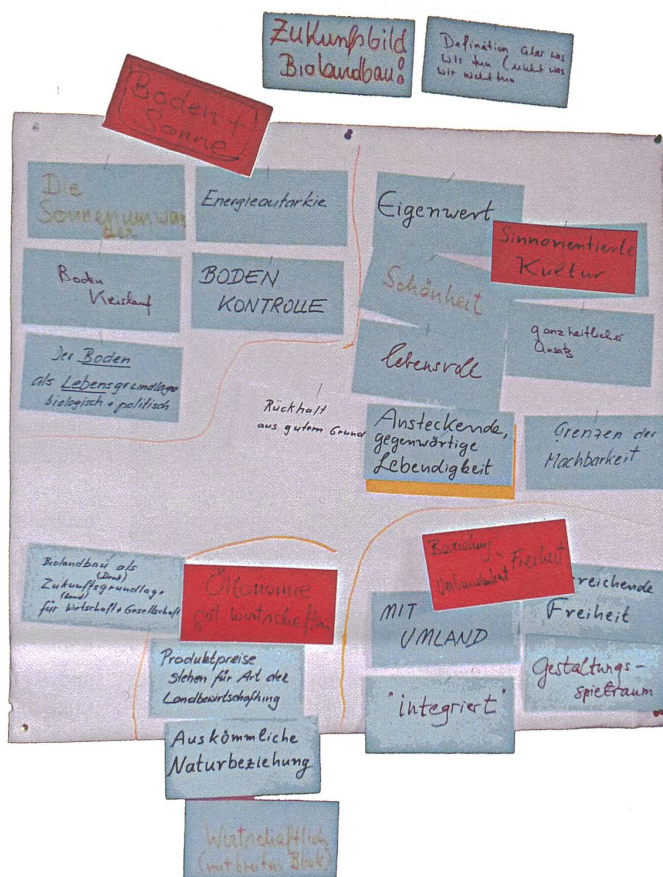 Zukunftsbild
Biolandbau!
Definition über was
wir tun (nicht was
wir nicht tun
Boden +
Sonne!
Die
Sonnenumwandler
Energieautarkie
Boden
Kreislauf
BODEN
KONTROLLE
Der Boden
als Lebensgrundlage
biologisch + politisch
Eigenwert
Sinnorientierte
Kultur
Schönheit
ganzheitlicher
Ansatz
lebensvoll
Rückhalt
aus gutem Grund
Ansteckende,
gegenwärtige
Lebendigkeit
Grenzen der
Machbarkeit
Biolandbau als
(Denk)
Zukunftsgrundlage
für Wirtschaft + Gesellschaft
Ökonomie
gut wirtschaften
Produktpreise
stehen für Art der
Landbewirtschaftung
Auskömmliche
Naturbeziehung
Wirtschaftlich
(mit breitem Blick)
Beziehung
Verbundenheit Freiheit
MIT
UMLAND
reichende
Freiheit
"integriert"
Gestaltungs-
spielraum